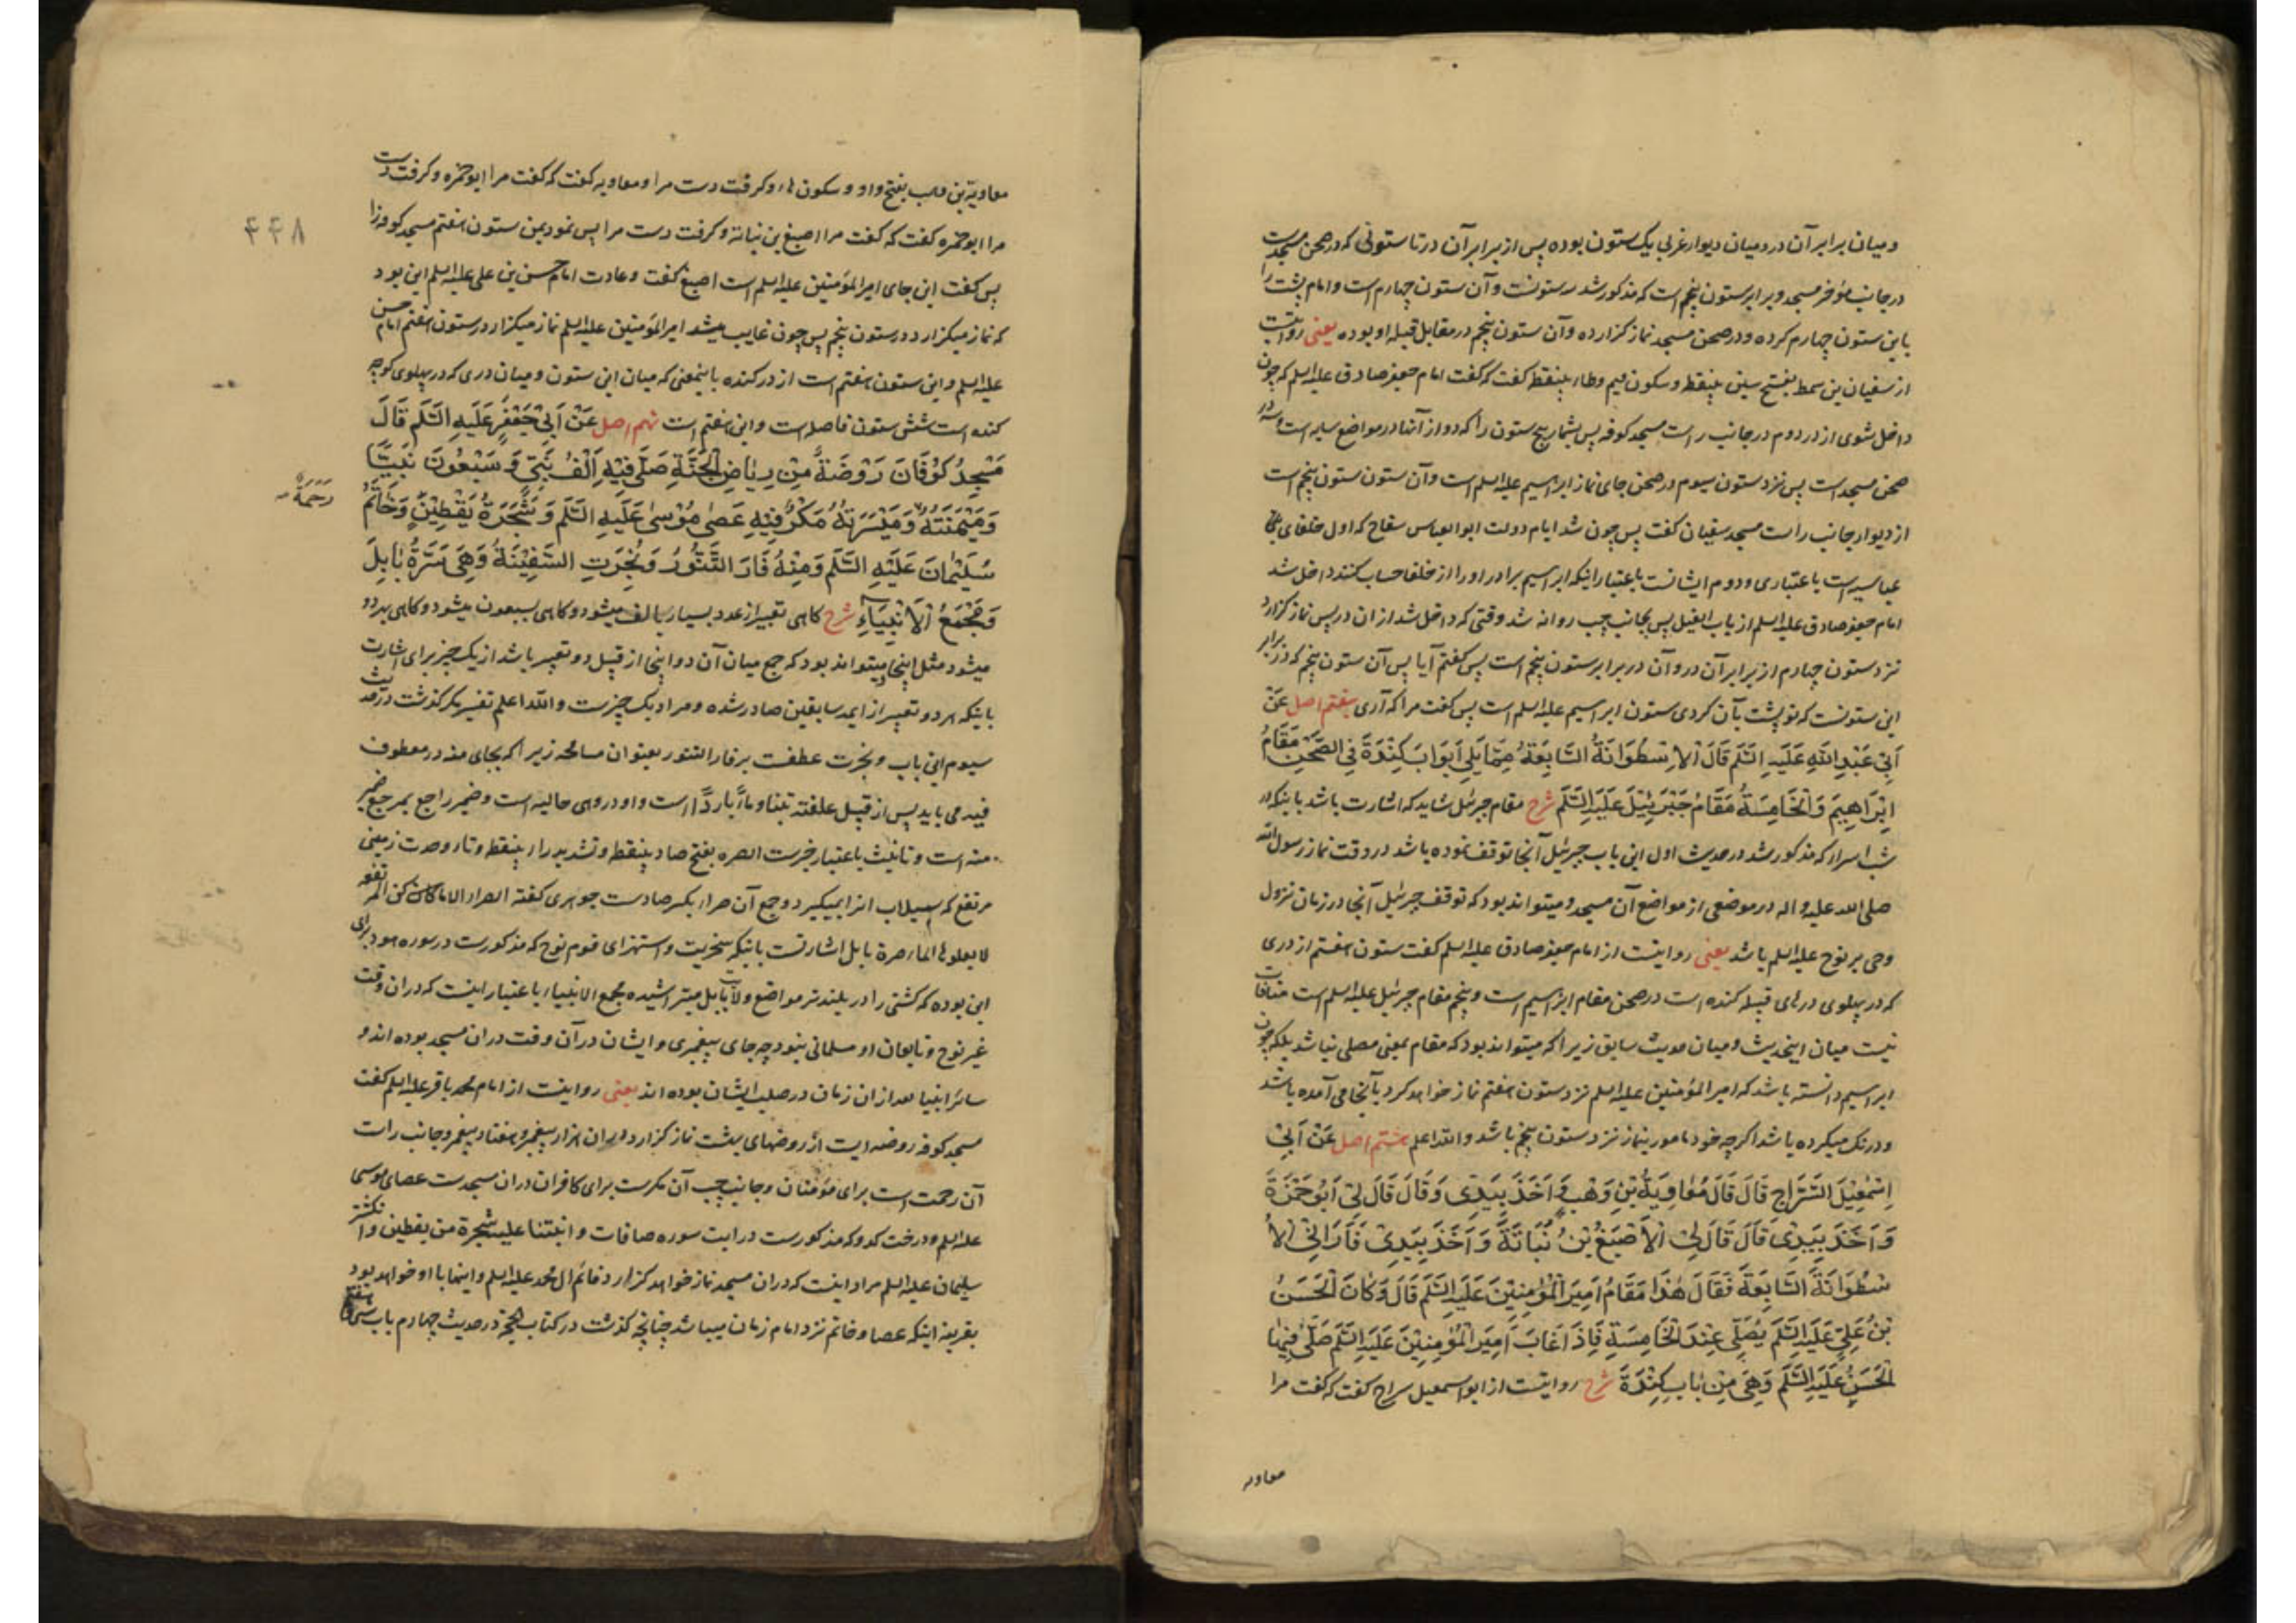 و میان برابر آن در و میان دیوار غربی یک ستون بوده پس از برابر آن در تا ستونی که در صحن مسجد است
در جانب مؤخر مسجد و برابر ستون پنجم است که مذکور شد سه ستونست و آن ستون چهارم است و امام پشت را
باین ستون چهارم کرده و در صحن مسجد نماز کزارده و آن ستون پنجم در مقابل قبلهٔ او بوده یعنی روایتست
از سفیان بن سمط بفتح سین بینقطه و سکون میم و طاء بینقطه کفت که کفت امام جعفر صادق علیه السلم که چون
داخل شوی از در دوم در جانب راست مسجد کوفه پس بشمار پنج ستون را که دو از آنها در مواضع سایه است و سه در
صحن مسجد است پس نزد ستون سیوم در صحن جای نماز ابراهیم علیه السلم است و آن ستون ستون پنجم است
از دیوار جانب راست مسجد سفیان کفت پس چون شد ایام دولت ابو العباس سفاح که اول خلفای بنی
عباسیه است باعتباری و دوم ایشانست باعتبار اینکه ابراهیم برادر او را از خلفا حساب کنند داخل شد
امام جعفر صادق علیه السلم از باب الفیل پس بجانب چپ روانه شد وقتی که داخل شد از ان در پس نماز کزارد
نزد ستون چهارم از برابر آن در و آن در برابر ستون پنجم است پس کفتم آیا پس آن ستون پنجم که در برابر
این ستونست که تو پشت بآن کردی ستون ابراهیم علیه السلم است پس کفت مرا که آری هفتم اصل عَنْ
اَبِی عَبْدِ اللّٰهِ عَلَیهِ السَّلَم قَالَ الاُسْطُوَانَةُ السَّابِعَةُ مِمَّا یَلِی اَبْوَابَ کِنْدَةَ فِی الصَّحْنِ مَقَامُ
اِبْرَاهِیمَ وَالْخَامِسَةُ مَقَامُ جَبْرَئِیْلَ عَلَیهِ السَّلَم شرح مقام جبرئیل شاید که اشارت باشد باینکه در
شب اسرا که مذکور شد در حدیث اول این باب جبرئیل آنجا توقف نموده باشد در وقت نماز رسول الله
صلی الله علیه و اله در موضعی از مواضع آن مسجد و میتواند بود که توقف جبرئیل آنجا در زمان نزول
وحی بر نوح علیه السلم باشد یعنی روایتست از امام جعفر صادق علیه السلم کفت ستون هفتم از دری
که در پهلوی درهای قبیله کنده است در صحن مقام ابراهیم است و پنجم مقام جبرئیل علیه السلم است منافات
نیست میان اینحدیث و میان حدیث سابق زیرا که میتواند بود که مقام بمعنی مصلی نباشد بلکه چون
ابراهیم دانسته باشد که امیر المؤمنین علیه السلم نزد ستون هفتم نماز خواهد کرد بآنجا می آمده باشد
و درنک میکرده باشد اکر چه خود مامور بنماز نزد ستون پنجم باشد و الله اعلم هشتم اصل عَنْ اَبِیْ
اِسْمٰعِیْلَ السَّرَّاجِ قَالَ قَالَ مُعَاوِیَةُ بْنِ وَهْبٍ وَاَخَذَ بِیَدِیْ وَقَالَ قَالَ لِیْ اَبُوحَمْزَةَ
وَاَخَذَ بِیَدِیْ قَالَ قَالَ لِیْ الاَصْبَغُ بْنُ نُبَاتَةَ وَاَخَذَ بِیَدِیْ فَاَرَانِیْ الاُ
سْطُوَانَةَ السَّابِعَةَ فَقَالَ هٰذَا مَقَامُ اَمِیْرَ الْمُؤْمِنِیْنَ عَلَیهِ السَّلَم قَالَ وَکَانَ الْحَسَنُ
بْنُ عَلِیٍّ عَلَیهِ السَّلَم یُصَلِّی عِنْدَ الْخَامِسَةِ فَاِذَا غَابَ اَمِیْرَ الْمُؤْمِنِیْنَ عَلَیهِ السَّلَم صَلّٰی فِیهَا
الْحَسَنُ عَلَیهِ السَّلَم وَهِیَ مِنْ بَابِ کِنْدَةَ شرح روایتست از ابو اسمعیل سراج کفت که کفت مرا
معاویه
معاویة بن وهب بفتح واو و سکون هاء و کرفت دست مرا و معاویه کفت که کفت مرا ابو حمزه و کرفت دست
۴۴۸
مرا ابو حمزه کفت که کفت مرا اصبغ بن نباته و کرفت دست مرا پس نمود بمن ستون هفتم مسجد کوفه را
پس کفت این جای امیر المؤمنین علیه السلم است اصبغ کفت و عادت امام حسن بن علی علیه السلم این بود
که نماز میکزارد در ستون پنجم پس چون غایب میشد امیر المؤمنین علیه السلم نماز میکزارد در ستون هفتم امام حسن
علیه السلم و این ستون هفتم است از در کنده باینمعنی که میان این ستون و میان دری که در پهلوی کوچهٔ
کنده است شش ستون فاصله است و این هفتم است نهم اصل عَنْ اَبِیْ جَعْفَرٍ عَلَیهِ السَّلَم قَالَ
مَسْجِدُ کُوْفَانَ رَوْضَةٌ مِنْ رِیَاضِ الْجَنَّةِ صَلّٰی فِیْهِ اَلْفُ نَبِیٍّ وَسَبْعُوْنَ نَبِیّاً
رَحْمَةٌ
وَمَیْمَنَتُهُ وَمَیْسَرَتُهُ مَکْرٌ فِیْهِ عَصٰی مُوْسٰی عَلَیهِ السَّلَم وَشَجَرَةُ یَقْطِیْنٍ وَخَاتَمُ
سُلَیْمَانَ عَلَیْهِ السَّلَم وَمِنْهُ فَارَ التَّنُّوْرُ وَنُجِرَتِ السَّفِیْنَةُ وَهِیَ سُرَّةُ بَابِلَ
وَمَجْمَعُ الاَنْبِیَآءِ شرح کاهی تعبیر از عدد بسیار بالف میشود و کاهی بسبعون میشود و کاهی بهر دو
میشود مثل اینجا و میتواند بود که جمع میان آن دو اینجا از قبیل دو تعبیر باشد از یک چیز برای اشارت
باینکه هر دو تعبیر از ایمهٔ سابقین صادر شده و مراد یک چیزست و الله اعلم تفسیر مکر کذشت در حدیث
سیوم این باب و نجرت عطفست بر فار التنور بعنوان مسامحه زیرا که بجای منه در معطوف
فیه می باید پس از قبیل علفته تبنا و ماءً باردًا است و او در وهی حالیه است و ضمیر راجع بمرجع ضمیر
منه است و تانیث باعتبار خبرست الصره بفتح صاد بینقطه و تشدید راء بینقطه و تاء وحدت زمینی
مرتفع که سیلاب انرا نمیکیرد و جمع آن صرار بکسر صادست جوهری کفته الصرار الاماکن المرتفعه
لا یعلوها الماء صرة بابل اشارتست باینکه سخریت و استهزای قوم نوح که مذکورست در سوره هود برای
این بوده که کشتی را در بلندتر مواضع ولایت بابل میتراشیده مجمع الانبیاء باعتبار اینست که در ان وقت
غیر نوح و تابعان او مسلمانی نبود چه جای پیغمبری و ایشان در آن وقت در ان مسجد بوده اند و
سائر انبیا بعد از ان زمان در صلب ایشان بوده اند یعنی روایتست از امام محمد باقر علیه السلم کفت
مسجد کوفه روضه ایست از روضهای بهشت نماز کزارد در ان هزار پیغمبر و هفتاد پیغمبر و جانب راست
آن رحمت است برای مؤمنان و جانب چپ آن مکرست برای کافران در ان مسجدست عصای موسی
علیه السلم و درخت کدو که مذکورست در ایت سوره صافات و انبتنا علیه شجرة من یقطین و انکشتر
سلیمان علیه السلم مراد اینست که در ان مسجد نماز خواهد کزارد قائم ال محمد علیه السلم و اینها با او خواهد بود
بقرینه اینکه عصا و خاتم نزد امام زمان میباشد چنانچه کذشت در کتاب الحجة در حدیث چهارم باب سی و هفتم